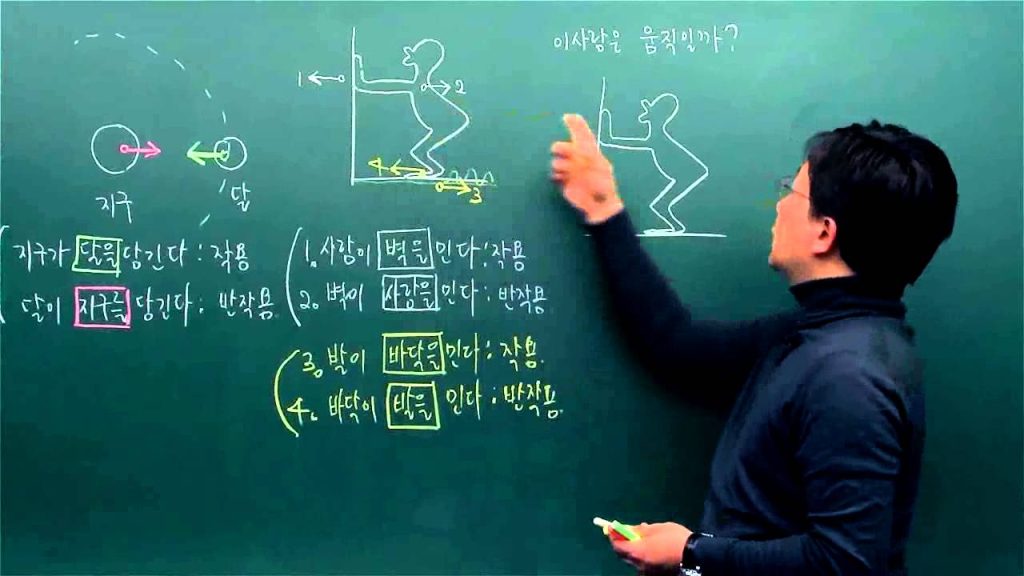 이사람은 움직일까?
1
2
4
3
지구
달
지구가 달을 당긴다 : 작용
달이 지구를 당긴다 : 반작용
1. 사람이 벽을 민다 : 작용
2. 벽이 사람을 민다 : 반작용
3. 발이 바닥을 민다 : 작용.
4. 바닥이 발을 민다 : 반작용.